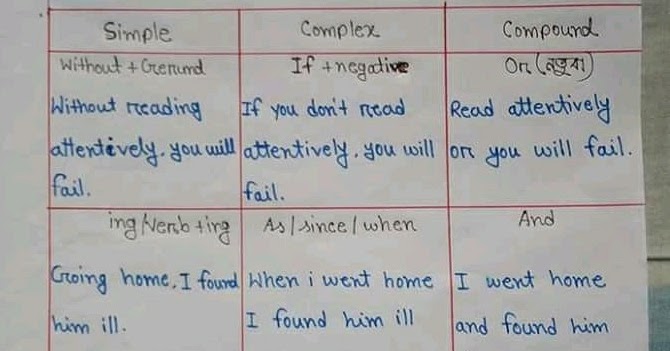 Simple
Complex
Compound
Without + Gerund
If + negative
Or (নতুবা)
Without reading
attentively, you will
fail.
If you don't read
attentively, you will
fail.
Read attentively
or you will fail.
ing/verb + ing
As / since / when
And
Going home, I found
him ill.
When i went home
I found him ill
I went home
and found him